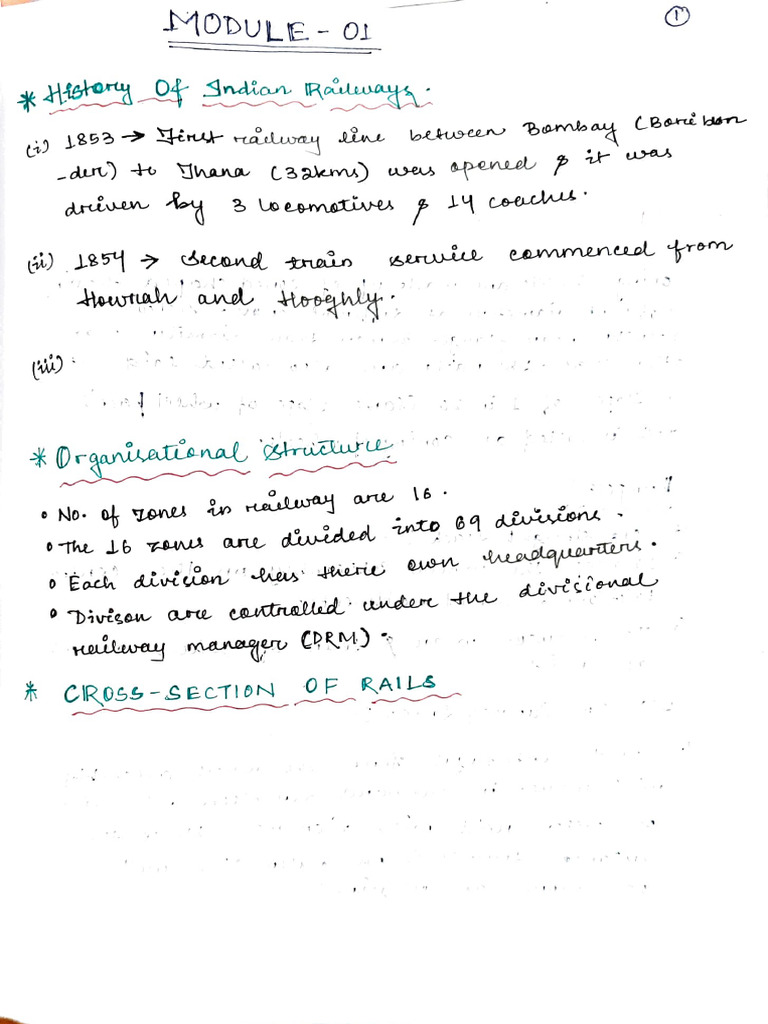 MODULE - 01
1
* History Of Indian Railways.
(i) 1853 → First railway line between Bombay (Bori bon
-der) to Thana (32kms) was opened & it was
driven by 3 locomotives & 14 coaches.
(ii) 1854 → Second train service commenced from
Howrah and Hooghly.
(iii)
* Organisational Structure
• No. of zones in railway are 16.
• The 16 zones are divided into 69 divisions.
• Each division has there own headquarters.
• Divison are controlled under the divisional
railway manager (DRM).
* CROSS-SECTION OF RAILS